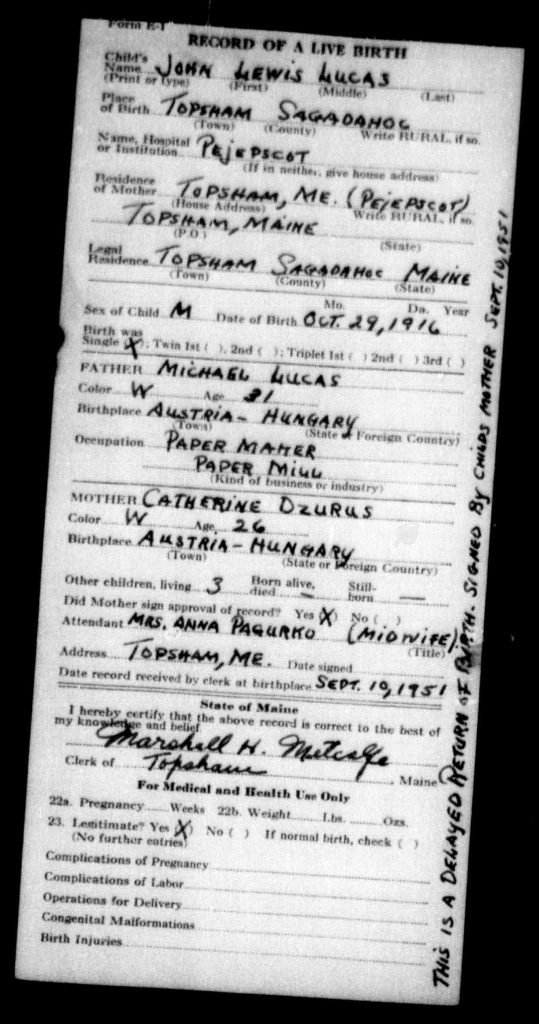 Form E-1
RECORD OF A LIVE BIRTH
Child's
Name JOHN LEWIS LUCAS
(Print or type) (First) (Middle) (Last)
Place
of Birth TOPSHAM SAGADAHOC
(Town) (County) Write RURAL, if so.
Name, Hospital
or Institution PEJEPSCOT
(If in neither, give house address)
Residence
of Mother TOPSHAM, ME. (PEJEPSCOT)
(House Address) Write RURAL, if so.
TOPSHAM, MAINE
(P.O.) (State)
Legal
Residence TOPSHAM SAGADAHOC MAINE
(Town) (County) (State)
Mo. Da. Year
Sex of Child M Date of Birth OCT. 29, 1916
Birth was
Single (X); Twin 1st ( ), 2nd ( ); Triplet 1st ( ) 2nd ( ) 3rd ( )
FATHER MICHAEL LUCAS
Color W Age 31
Birthplace AUSTRIA-HUNGARY
(Town) (State or Foreign Country)
Occupation PAPER MAKER
PAPER MILL
(Kind of business or industry)
MOTHER CATHERINE DZURUS
Color W Age 26
Birthplace AUSTRIA-HUNGARY
(Town) (State or Foreign Country)
Other children, living 3 Born alive, died — Still-born —
Did Mother sign approval of record? Yes (X) No ( )
Attendant MRS. ANNA PAGURKO (MIDWIFE)
(Title)
Address TOPSHAM, ME. Date signed
Date record received by clerk at birthplace SEPT. 10, 1951
State of Maine
I hereby certify that the above record is correct to the best of
my knowledge and belief
Marshall H. Metcalfe
Clerk of Topsham, Maine
For Medical and Health Use Only
22a. Pregnancy Weeks 22b. Weight Lbs. Ozs.
23. Legitimate? Yes (X) No ( ) If normal birth, check ( )
(No further entries)
Complications of Pregnancy
Complications of Labor
Operations for Delivery
Congenital Malformations
Birth Injuries
THIS IS A DELAYED RETURN OF BIRTH. SIGNED BY CHILDS MOTHER SEPT. 10, 1951